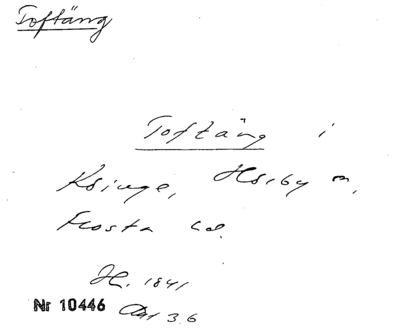 Toftäng
Toftäng i
Ksinge, Hörby sn,
Frosta hd.
H. 1841
Nr 10446 Akt 36